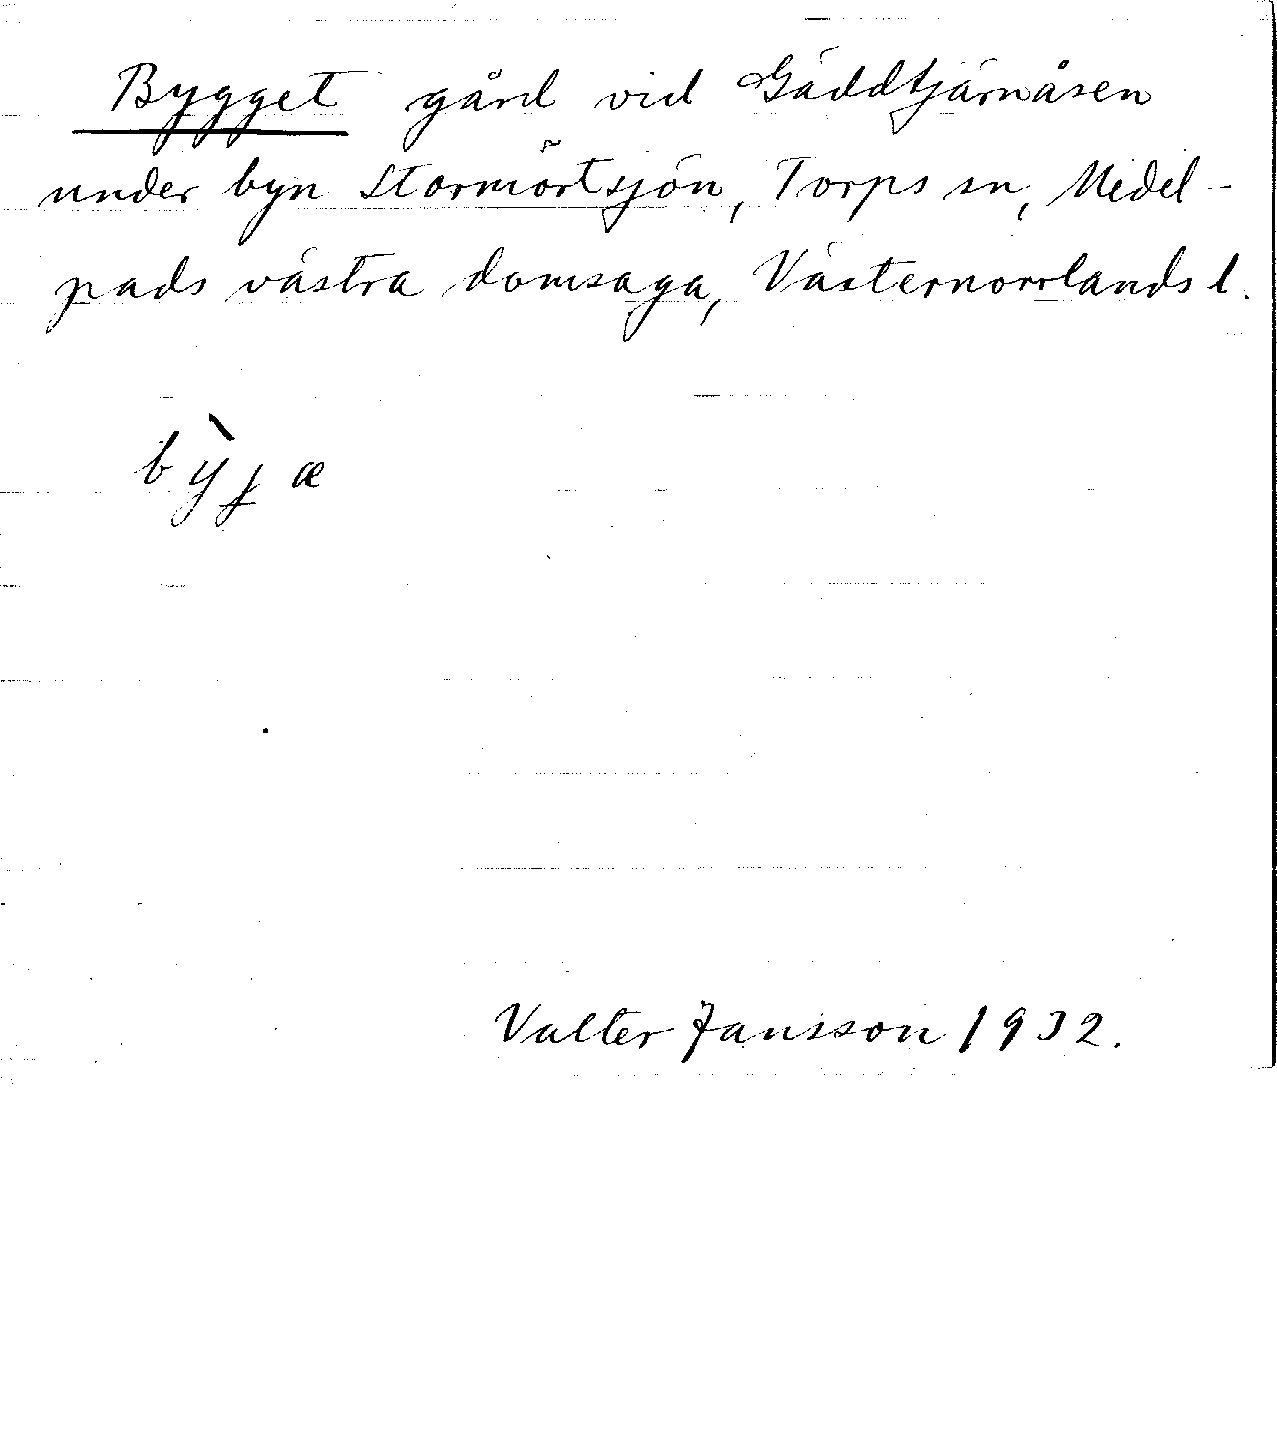 Bygget gård vid Gäddtjärnåsen
under byn Stormörtsjön, Torps sn, Medel-
pads västra domsaga, Västernorrlands l.
bỳɟæ
Valter Jansson 1932.